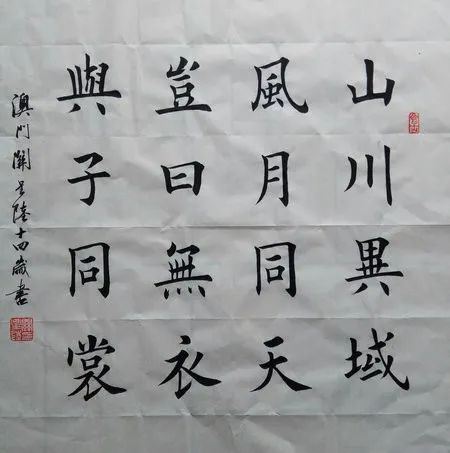 山川異域
風月同天
豈曰無衣
與子同裳
澳門關昱陸十四歲書